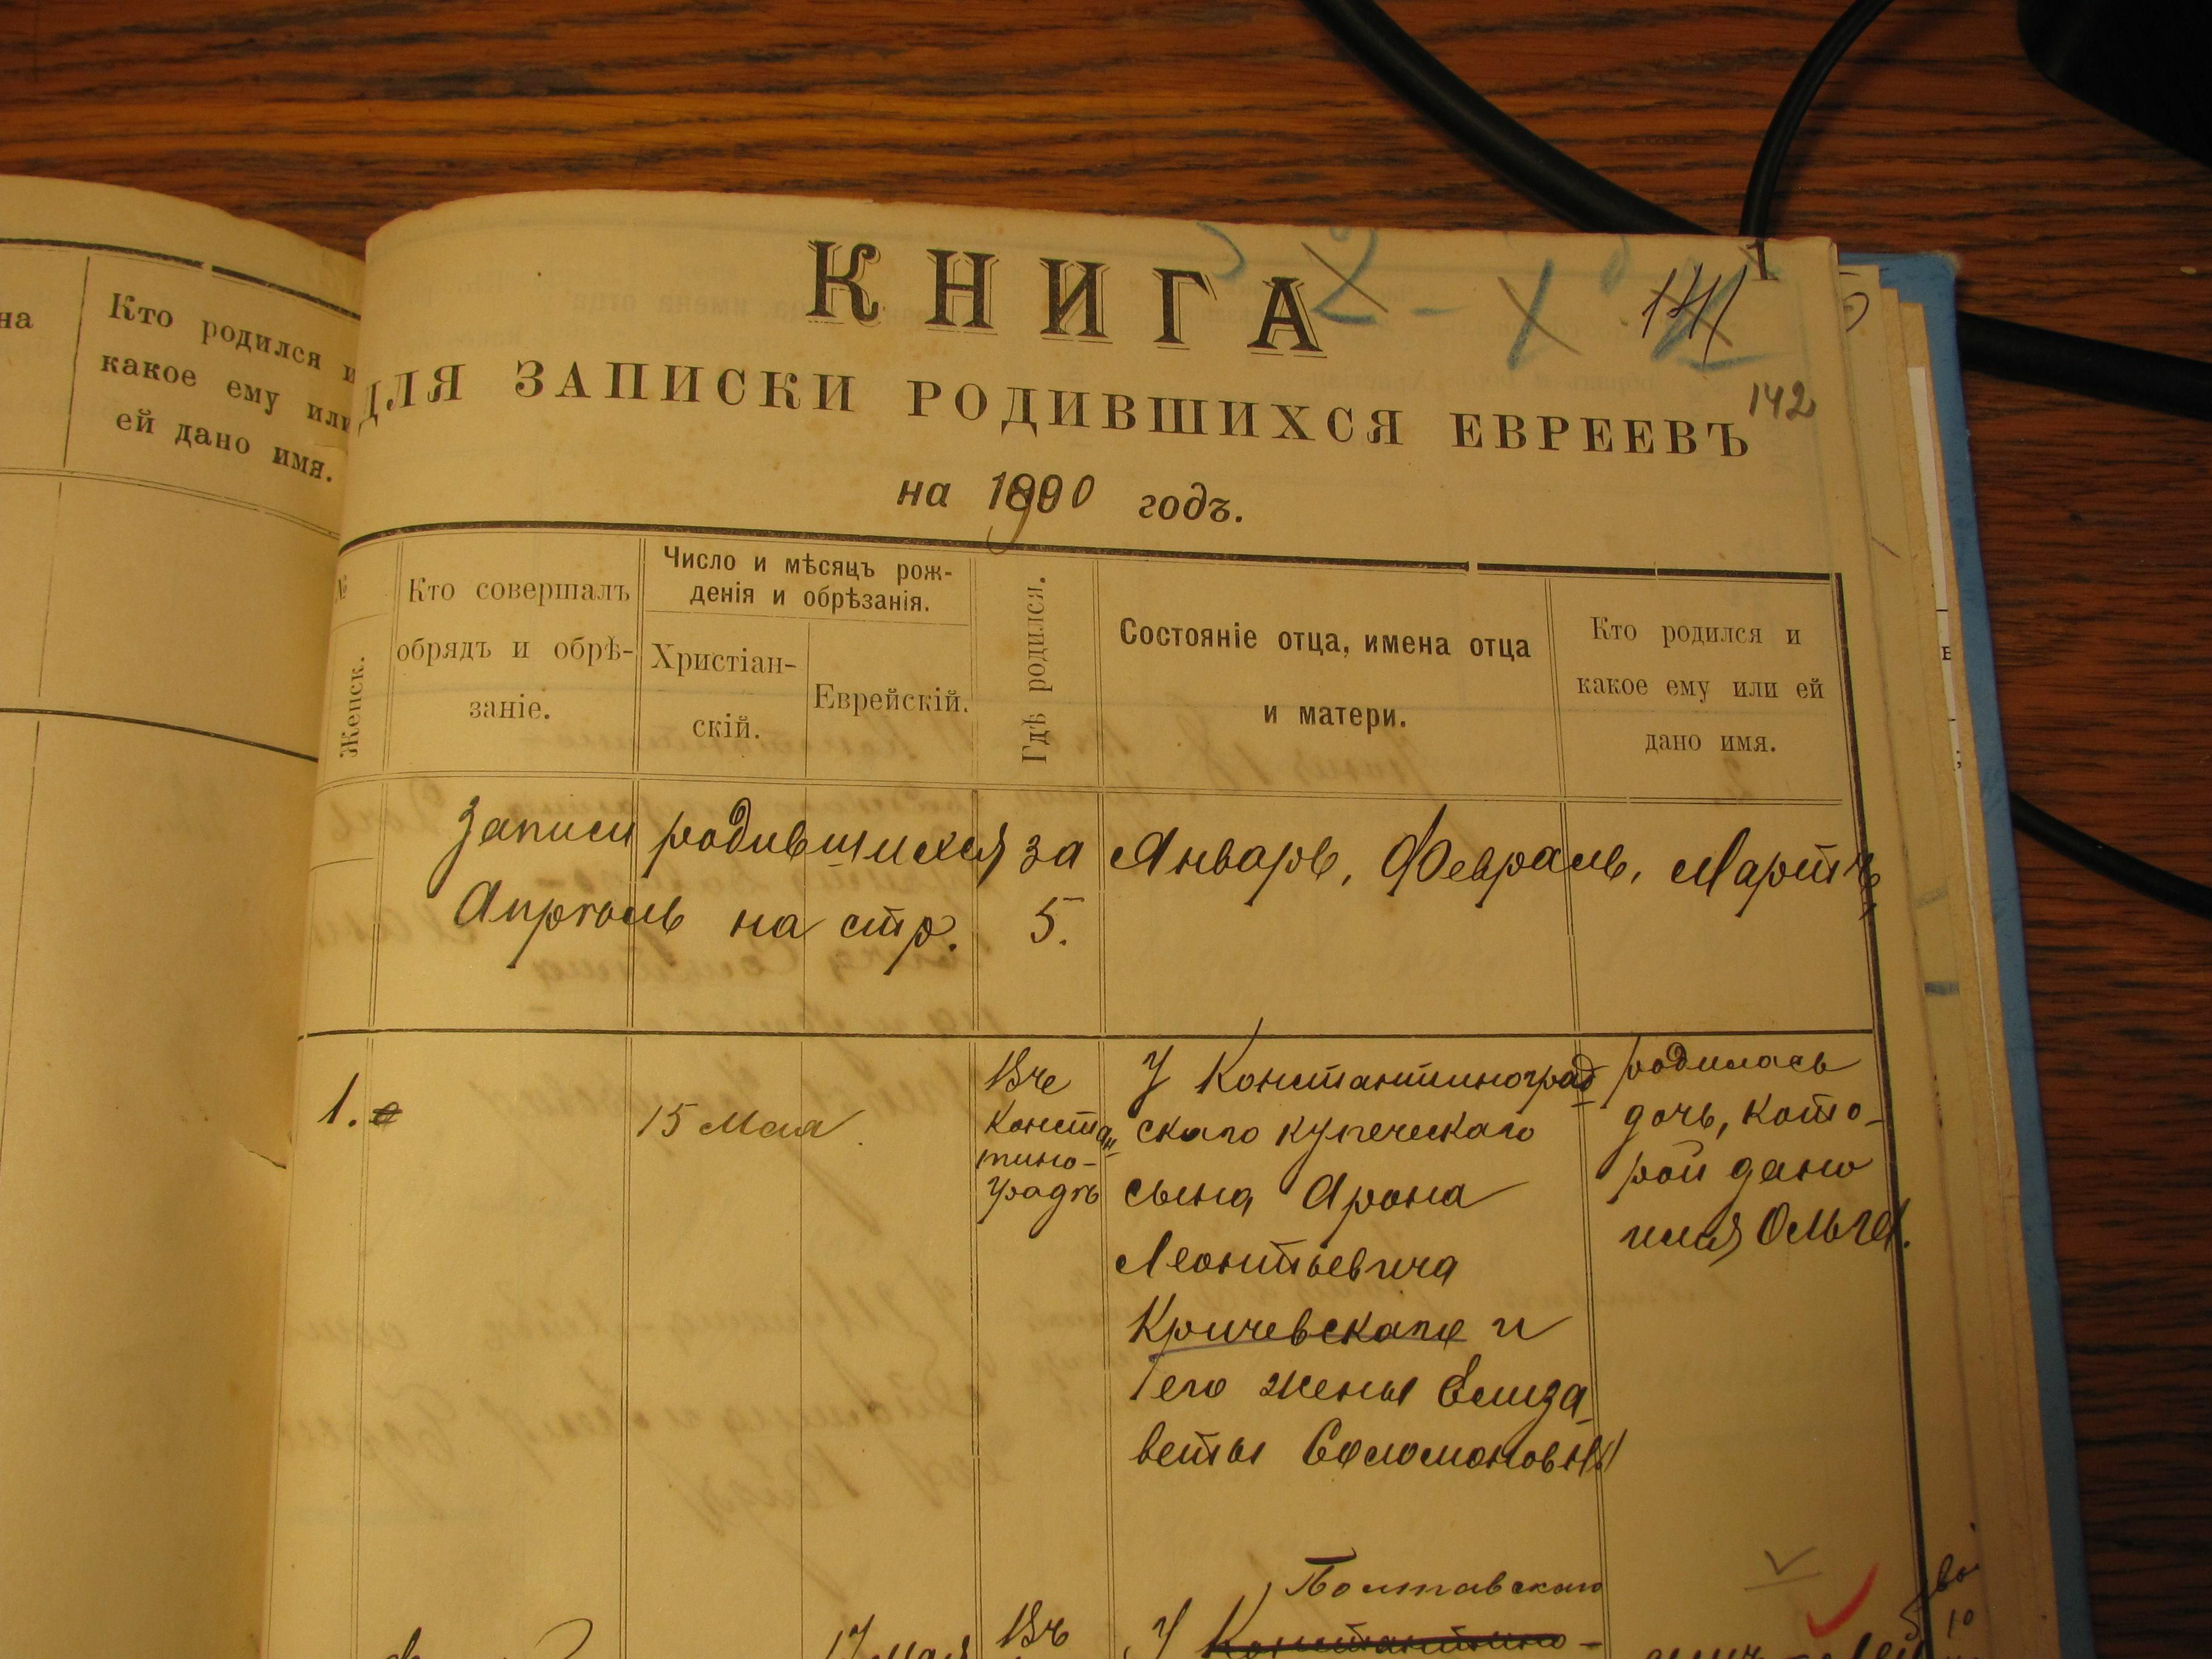 на
Кто родился и
какое ему или
ей дано имя.
КНИГА
141
1
142
ДЛЯ ЗАПИСКИ РОДИВШИХСЯ ЕВРЕЕВЪ
на 1900 годъ.
№
Женск.
Кто совершалъ
обрядъ и обрѣ-
заніе.
Число и мѣсяцъ рож-
денія и обрѣзанія.
Христіан-
скій.
Еврейскій.
Гдѣ родился.
Состояніе отца, имена отца
и матери.
Кто родился и
какое ему или ей
дано имя.
Записи родившихся за Январь, Февраль, Мартъ,
Апрѣль на стр. 5.
1.
15 Мая
Въ
Констан-
тино-
градѣ
У Константиноград-
скаго купеческаго
сына Арона
Леонтьевича
Кричевскаго и
его жены Елиза-
веты Соломоновны
родилась
дочь, кото-
рой дано
имя Ольга.
Полтавскаго
17 Мая
Въ
У Константино-